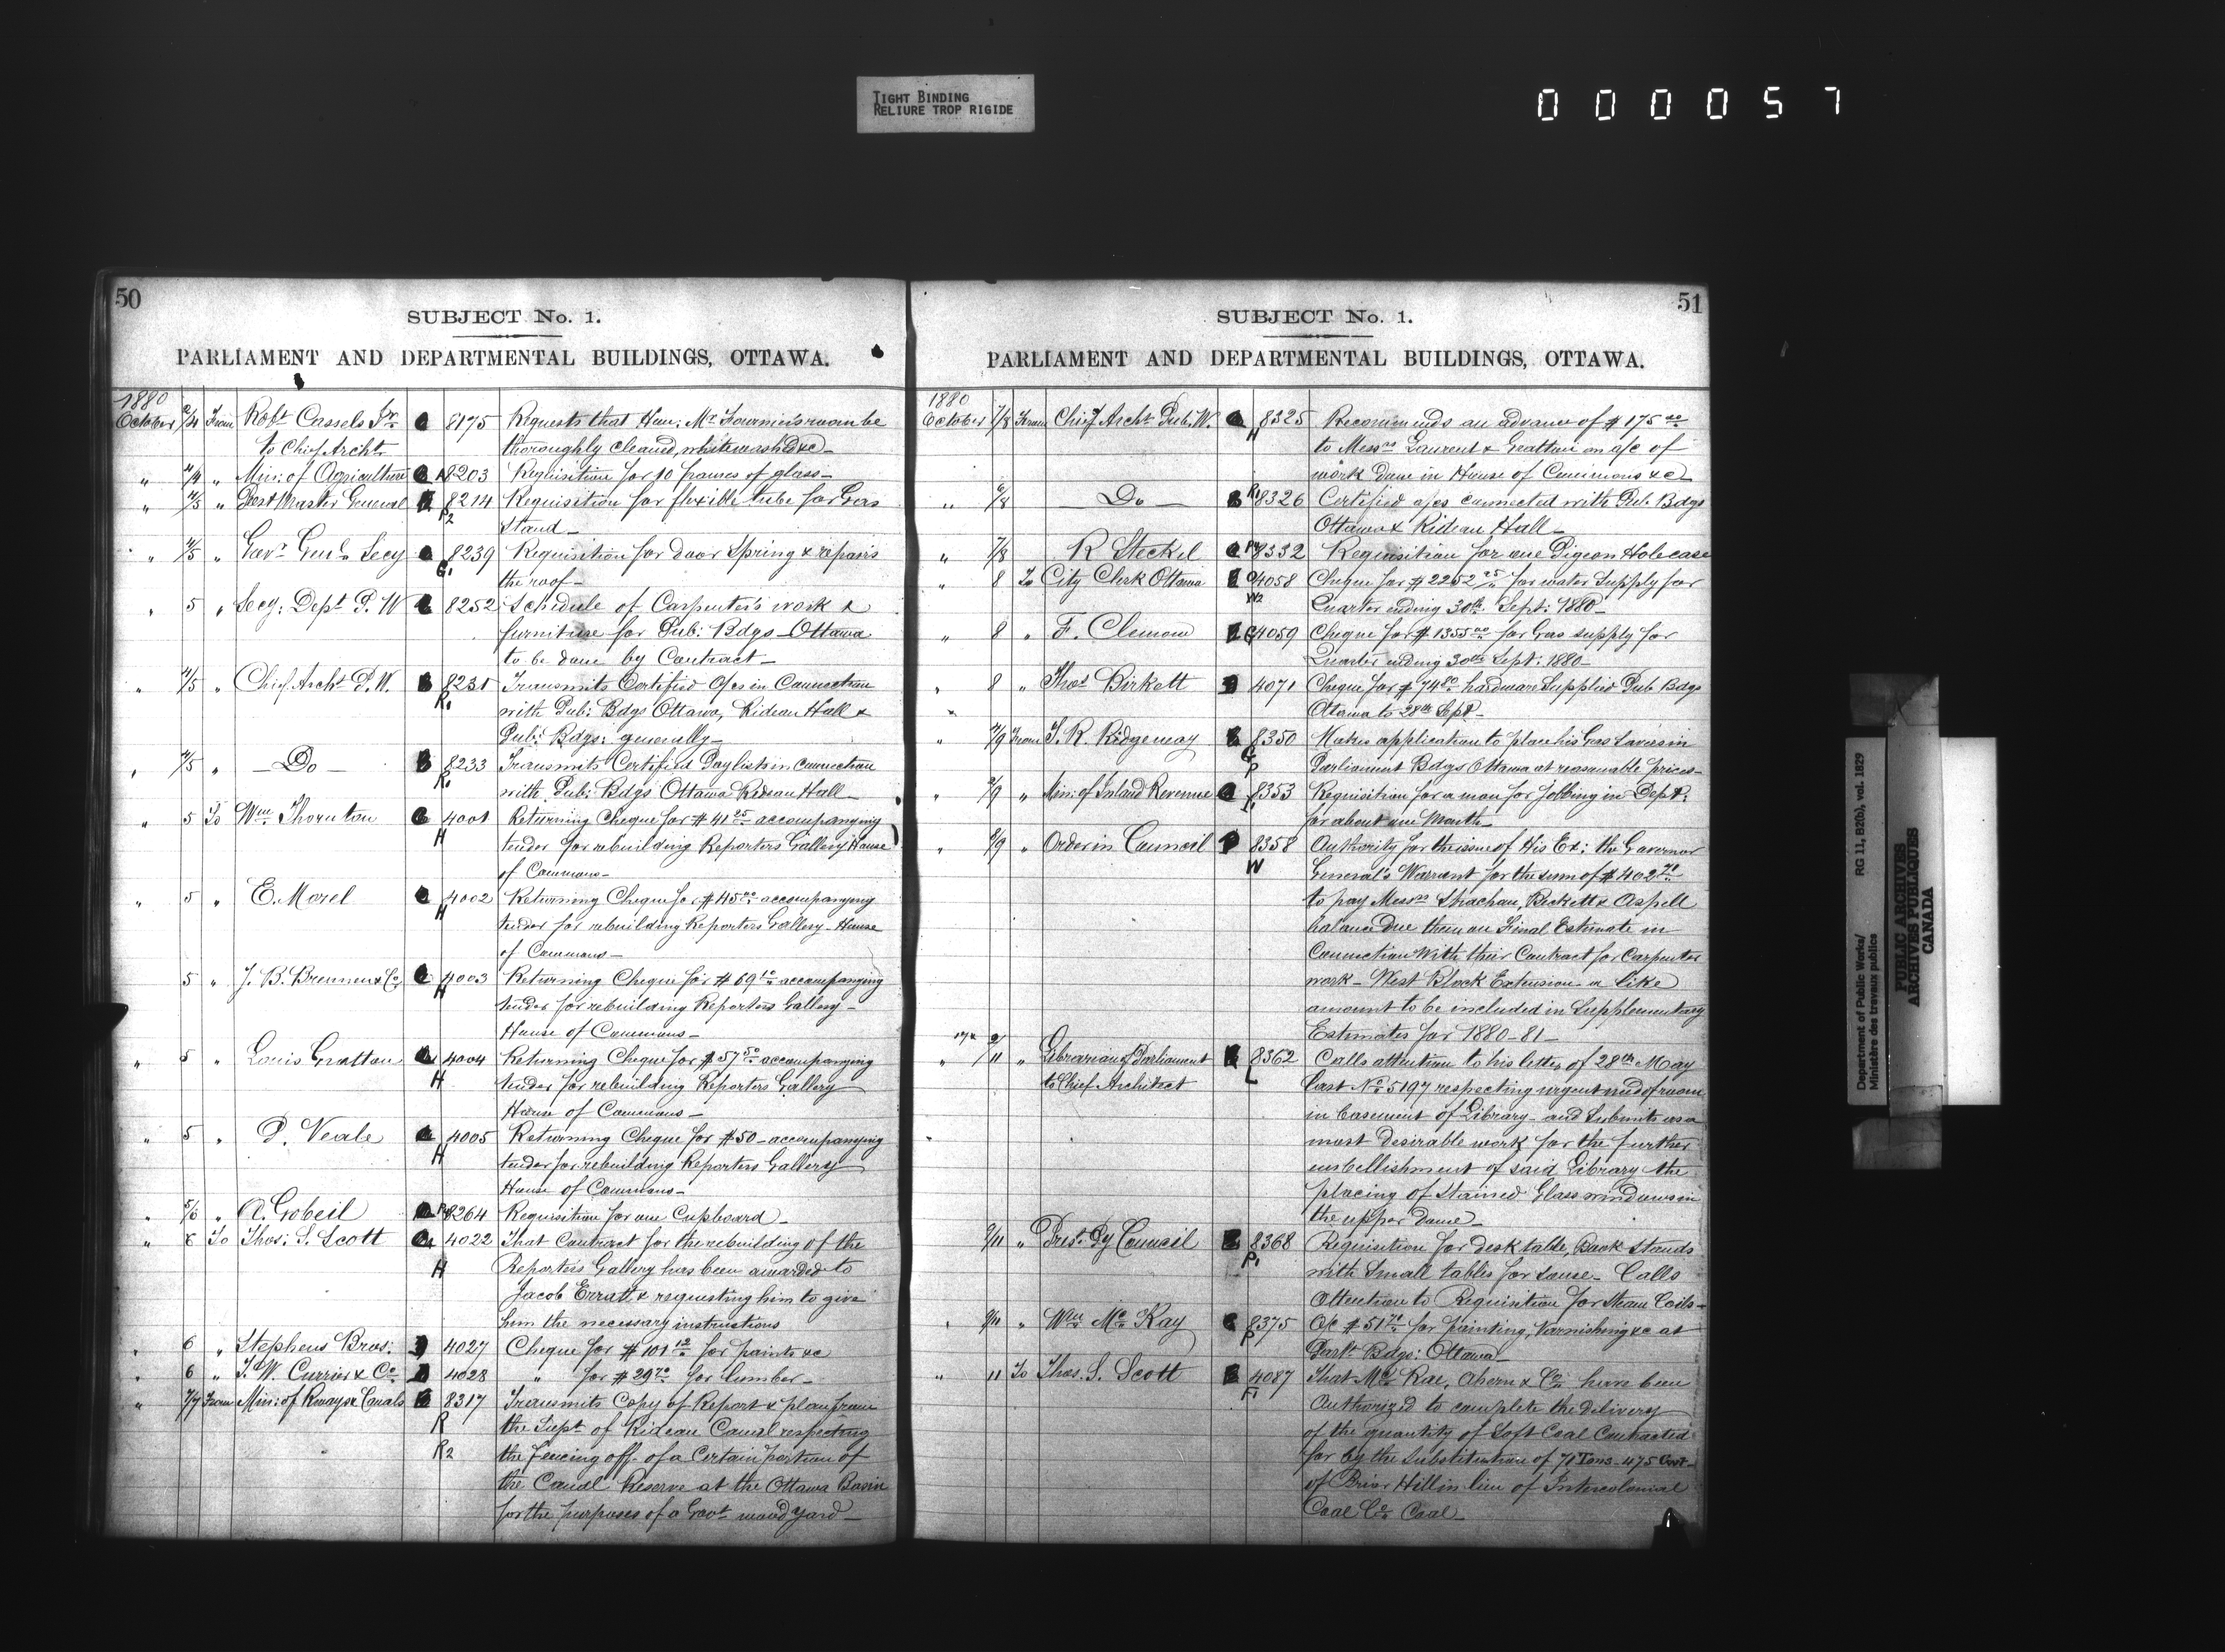 TIGHT BINDING
RELIURE TROP RIGIDE
000057
50
SUBJECT No. 1.
PARLIAMENT AND DEPARTMENTAL BUILDINGS, OTTAWA.
1880
October 2/4 From Robt Cassels Jr 8175 Requests that Hon: Mr Fournier's room be
to Chief Archt thoroughly cleaned, whitewashed &c
" 4/4 " Min: of Agriculture 8203 Requisition for 10 panes of glass
" 4/5 " Post Master General 8214 Requisition for flexible tube for Gas
P2 Stand
" 4/5 " Govr Genl Secy 8239 Requisition for door Spring & repairs
G1 the roof
" 5 " Secy: Dept P. W 8252 Schedule of Carpenter's work &
furniture for Pub: Bdgs Ottawa
to be done by Contract
" 4/5 " Chief Archt P. W. 8231 Transmits Certified a/cs in Connection
R1 with Pub: Bdgs Ottawa, Rideau Hall &
Pub: Bdgs: generally
" 4/5 " Do 8233 Transmits Certified Paylists in connection
R1 with Pub: Bdgs Ottawa Rideau Hall
" 5 To Wm Thornton 4001 Returning Cheque for $41 25 accompanying
H tender for rebuilding Reporters Gallery House
of Commons
" 5 " E. Morel 4002 Returning Cheque for $45 00 accompanying
H tender for rebuilding Reporters Gallery House
of Commons
5 " J. B. Brennen & Co 4003 Returning Cheque for $69 10 accompanying
H tender for rebuilding Reporters Gallery
House of Commons
" 5 " Louis Gratton 4004 Returning Cheque for $57 50 accompanying
H tender for rebuilding Reporters Gallery
House of Commons
" 5 " P. Veale 4005 Returning Cheque for $50 accompanying
H tender for rebuilding Reporters Gallery
House of Commons
" 5/6 " A. Gobeil 8264 Requisition for one Cupboard
" 6 To Thos: S. Scott 4022 That Contract for the rebuilding of the
H Reporters Gallery has been awarded to
Jacob Erratt & requesting him to give
him the necessary instructions
" 6 " Stephens Bros: 4027 Cheque for $101 12 for paints &c
" 6 " T. W. Currier & Co 4028 " for $29 70 for lumber
" 7/7 From Min: of Rways & Canals 8317 Transmits Copy of Report & plan from
R the Supt of Rideau Canal respecting
R2 the Fencing off of a Certain portion of
the Canal Reserve at the Ottawa Basin
for the purposes of a Govt wood yard
51
SUBJECT No. 1.
PARLIAMENT AND DEPARTMENTAL BUILDINGS, OTTAWA.
1880
October 7/8 From Chief Archt Pub. W. 8325 Recommends an advance of $175 00
H to Messrs Laurent & Gratton on a/c of
work done in House of Commons &c
" 6/8 Do R1 8326 Certified a/cs connected with Pub Bdgs
Ottawa & Rideau Hall
" 7/8 R Steckel 8332 Requisition for one Pigeon Hole case
" 8 To City Clerk Ottawa 4058 Cheque for $2252 25 for water Supply for
W2 Quarter ending 30th Sept: 1880
" 8 " F. Clemow 4059 Cheque for $1355 00 for Gas supply for
Quarter ending 30th Sept: 1880
" 8 " Thos Birkett 4071 Cheque for $74 80 hardware Supplied Pub Bdgs
" Ottawa to 28th Sept
" 4/9 From T. R. Ridgeway 8350 Makes application to place his Gas Savers in
G P Parliament Bdgs Ottawa at reasonable prices
" 2/9 " Min: of Inland Revenue 8353 Requisition for a man for jobbing in Dept:
for about one Month
" 8/9 " Order in Council 8358 Authority for the issue of His Ex: the Governor
W General's Warrant for the sum of $402 71
to pay Messrs Strachan, Beckett & Aspell
balance due them on Final Estimate in
Connection With their Contract for Carpenter
work West Block Extension a like
amount to be included in Supplementary
Estimates for 1880-81
" 9/11 " Librarian of Parliament 8362 Calls attention to his letter of 28th May
to Chief Architect L last No 5197 respecting urgent need of room
in basement of Library and Submits as a
most desirable work for the further
embellishment of said Library the
placing of Stained Glass windows in
the upper dome
9/11 " Prest Py Council 8368 Requisition for desk table, Book Stands
P1 with Small tables for same. Calls
Attention to Requisition for Steam Coils
" 9/11 " Wm McKay 8375 a/c $51 71 for painting, Varnishing &c at
P Parlt Bdgs: Ottawa
" 11 To Thos. S. Scott 4087 That McRae, Ahern & Co: have been
F1 Authorized to complete the delivery
of the quantity of Soft Coal Contracted
for by the Substitution of 71 Tons 475 Cwt
of Briar Hill in lieu of Intercolonial
Coal Co Coal
Department of Public Works/ RG 11, B2(b), vol. 1829
Ministère des travaux publics
PUBLIC ARCHIVES
ARCHIVES PUBLIQUES
CANADA